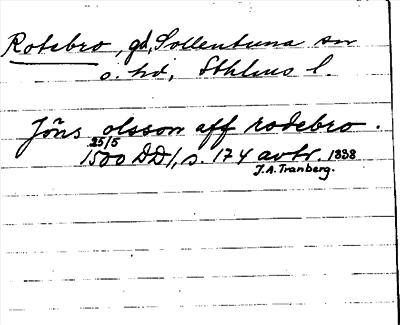 Rotebro, gd, Sollentuna sn
o. hd, Sthlms l.
Jöns olsson aff rodebro.
25/5
1500 DD1, s. 174 avtr. 1838
J.A. Tranberg.